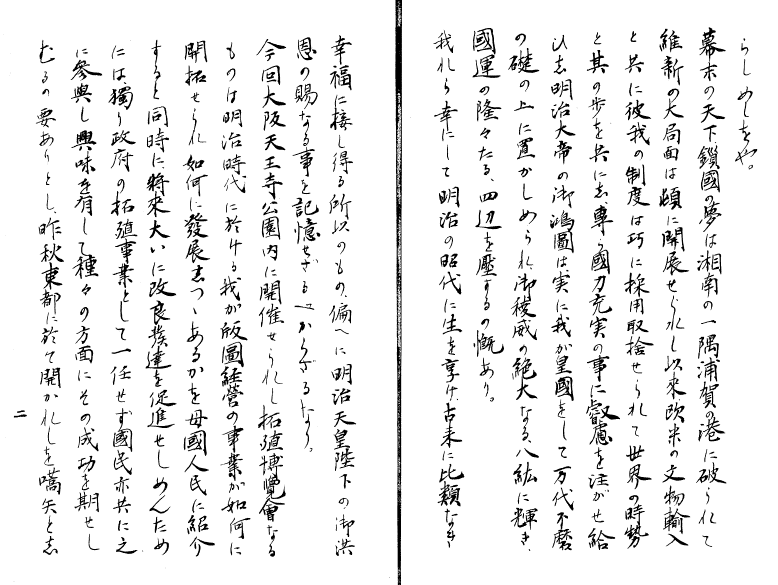 らしめしをや。
幕末の天下鎖國の夢は湘南の一隅浦賀の港に破られて
維新の大局面は頓に開展せられし以來欧米の文物輸入
と共に彼我の制度は巧に採用取捨せられて世界の時勢
と其の歩を共にし專ら國力充実の事に叡慮を注がせ給
ひし明治大帝の御鴻圖は実に我が皇國をして万代不磨
の礎の上に置かしめられ、御稜威の絶大なる、八紘に輝き、
國運の隆々たる、四辺を壓するの慨あり。
我れら幸にして明治の昭代に生を享け、古来に比類なき
幸福に接し得る所以のもの、偏へに明治天皇陛下の御洪
恩の賜なる事を記憶せざるべからざるなり。
今回大阪天王寺公園内に開催せられし拓殖博覽會なる
ものは明治時代に於ける我が版圖経営の事業が如何に
開拓せられ如何に發展しつゝあるかを母國人民に紹介
すると同時に將來大いに改良發達を促進せしめんため
には、獨り政府の拓殖事業として一任せず國民亦共に之
に參與し興味を有して種々の方面にその成功を期せし
むるの要ありとし昨秋東都に於て開かれしを嚆矢とし
二